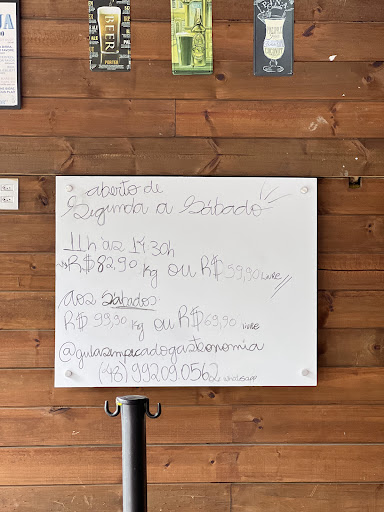 BEER
PORTER
aberto de
Segunda a Sábado
11h às 14:30h
R$82,90 kg ou R$59,90 livre
aos Sábados:
R$ 99,90 kg ou R$69,90 livre
(48) 99209.0562 whatsapp